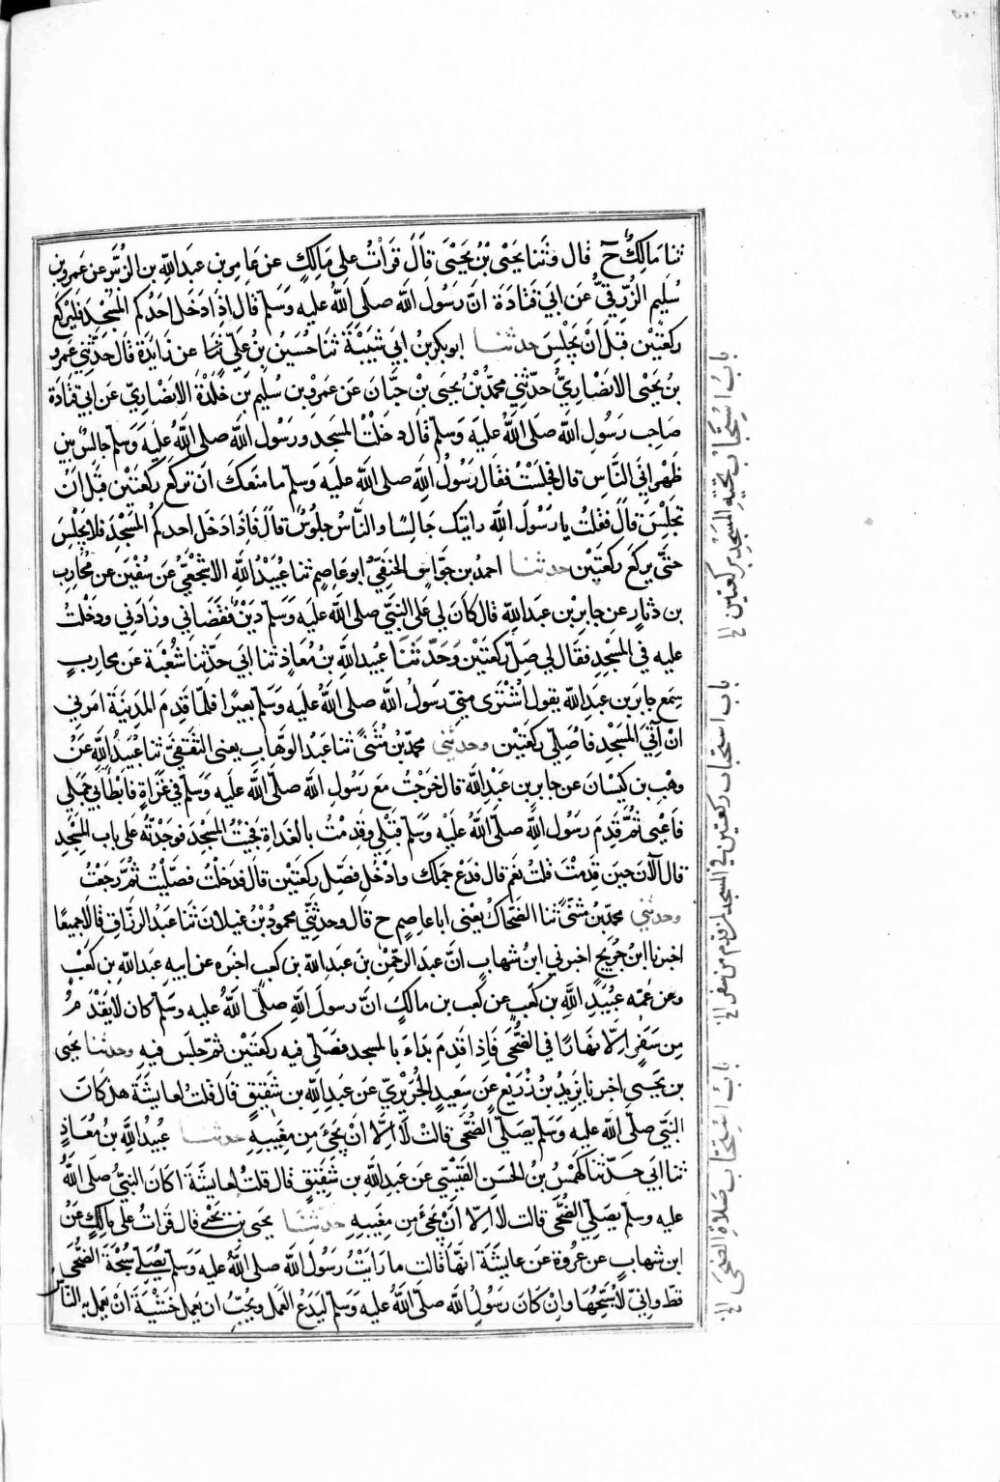 ثنا مالك ح قال وثنا يحيى بن يحيى قال قرأت على مالك عن عامر بن عبد الله بن الزبير عن عمرو بن
سليم الزرقي عن ابي قتادة ان رسول الله صلى الله عليه وسلم قال اذا دخل احدكم المسجد فليركع
ركعتين قبل ان يجلس حدثنا ابو بكر بن ابي شيبة ثنا حسين بن علي عن زايدة قال حدثني عمرو
بن يحيى الانصاري حدثني محمد بن يحيى بن حبان عن عمرو بن سليم بن خلدة الانصاري عن ابي قتادة
صاحب رسول الله صلى الله عليه وسلم قال دخلت المسجد ورسول الله صلى الله عليه وسلم جالس بين
ظهراني الناس قال فجلست فقال رسول الله صلى الله عليه وسلم ما منعك ان تركع ركعتين قبل ان
تجلس قال فقلت يا رسول الله رايتك جالسا والناس جلوس قال فاذا دخل احدكم المسجد فلا يجلس
حتى يركع ركعتين حدثنا احمد بن جواس الحنفي ابو عاصم ثنا عبيد الله الاشجعي عن سفين عن محارب
بن دثار عن جابر بن عبد الله قال كان لي على النبي صلى الله عليه وسلم دين فقضاني وزادني ودخلت
عليه في المسجد فقال لي صل ركعتين وحدثنا عبيد الله بن معاذ ثنا ابي حدثنا شعبة عن محارب
سمع جابر بن عبد الله يقول اشترى مني رسول الله صلى الله عليه وسلم بعيرا فلما قدم المدينة امرني
ان آتي المسجد فاصلي ركعتين وحدثني محمد بن مثنى ثنا عبد الوهاب يعني الثقفي ثنا عبيد الله عن
وهب بن كيسان عن جابر بن عبد الله قال خرجت مع رسول الله صلى الله عليه وسلم في غزاة فابطأ بي جملي
فاعيى ثم قدم رسول الله صلى الله عليه وسلم قبلي وقدمت بالغداة فجئت المسجد فوجدته على باب المسجد
قال الآن حين قدمت قلت نعم قال فدع جملك وادخل فصل ركعتين قال فدخلت فصليت ثم رجعت
وحدثني محمد بن مثنى ثنا الضحاك يعني ابا عاصم ح قال وحدثني محمود بن غيلان ثنا عبد الرزاق قالا جميعا
اخبرنا ابن جريج اخبرني ابن شهاب ان عبد الرحمن بن عبد الله بن كعب اخبره عن ابيه عبد الله بن كعب
وعن عمه عبيد الله بن كعب عن كعب بن مالك ان رسول الله صلى الله عليه وسلم كان لا يقدم
من سفر الا نهارا في الضحى فاذا قدم بداء بالمسجد فصلى فيه ركعتين ثم جلس فيه وحدثنا يحيى
بن يحيى اخبرنا يزيد بن زريع عن سعيد الجريري عن عبد الله بن شقيق قال قلت لعايشة هل كان
النبي صلى الله عليه وسلم يصلي الضحى قالت لا الا ان يجئ من مغيبه حدثنا عبيد الله بن معاذ
ثنا ابي حدثنا كهمس بن الحسن القيسي عن عبد الله بن شقيق قال قلت لعايشة اكان النبي صلى الله
عليه وسلم يصلي الضحى قالت لا الا ان يجئ من مغيبه حدثنا يحيى بن يحيى قال قرات على مالك عن
ابن شهاب عن عروة عن عايشة انها قالت ما رايت رسول الله صلى الله عليه وسلم يصلي سبحة الضحى
قط واني لاسبحها وان كان رسول الله صلى الله عليه وسلم ليدع العمل ويحب ان يعمل خشية ان يعمل به الناس
باب استحباب تحية المسجد بركعتين الخ
باب استحباب ركعتين في المسجد لمن قدم من سفر الخ
باب استحباب صلاة الضحى الخ